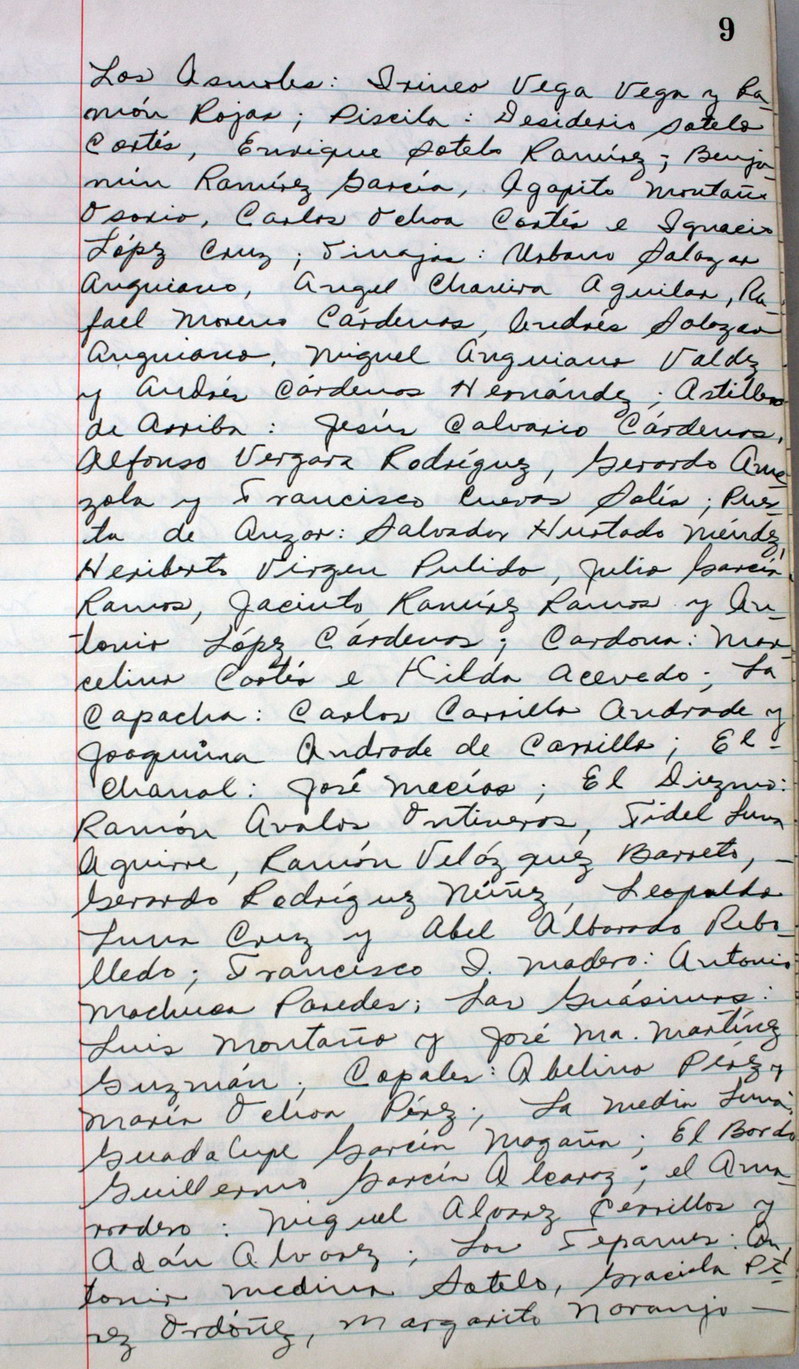 9
Los Asmoles: Irineo Vega Vega y Ra-
món Rojas; Piscila: Desiderio Sotelo
Cortés, Enrique Sotelo Ramírez; Benja-
mín Ramírez García, Agapito Montaño
Osorio, Carlos Ochoa Cortés e Ignacio
López Cruz; Tinajas: Urbano Salazar
Anguiano, Angel Chavira Aguilar, Ra-
fael Moreno Cárdenas, Andrés Salazar
Anguiano, Miguel Anguiano Valdez
y Andrés Cárdenas Hernández; Astillero
de Arriba: Jesús Calvario Cárdenas,
Alfonso Vergara Rodríguez, Gerardo Ame-
zola y Francisco Cuevas Solís; Puer-
ta de Anzar: Salvador Hurtado Méndez,
Heriberto Virgen Pulido, Julio García
Ramos, Jacinto Ramírez Ramos y An-
tonio López Cárdenas; Cardona: Mar-
celino Cortés e Hilda Acevedo; La
Capacha: Carlos Carrillo Andrade y
Joaquina Andrade de Carrillo; El -
Chanal: José Macías; El Diezmo:
Ramón Avalos Ontiveros, Fidel Luna
Aguirre, Ramón Velázquez Barreto, -
Gerardo Rodríguez Núñez, Leopoldo
Luna Cruz y Abel Alborado Rebo-
lledo; Francisco I. Madero: Antonio
Machuca Paredes; Las Guásimas:
Luis Montaño y José Ma. Martínez
Guzmán; Copales: Abelino Pérez y
María Ochoa Pérez; La Media Luna:
Guadalupe García Magaña; El Bordo
Guillermo García Alcaraz; el Ama-
rradero: Miguel Alvarez Cerrillos y
Adán Alvarez; Los Tepames: An-
tonio Medina Sotelo, Graciela Pé-
rez Ordóñez, Margarito Naranjo -